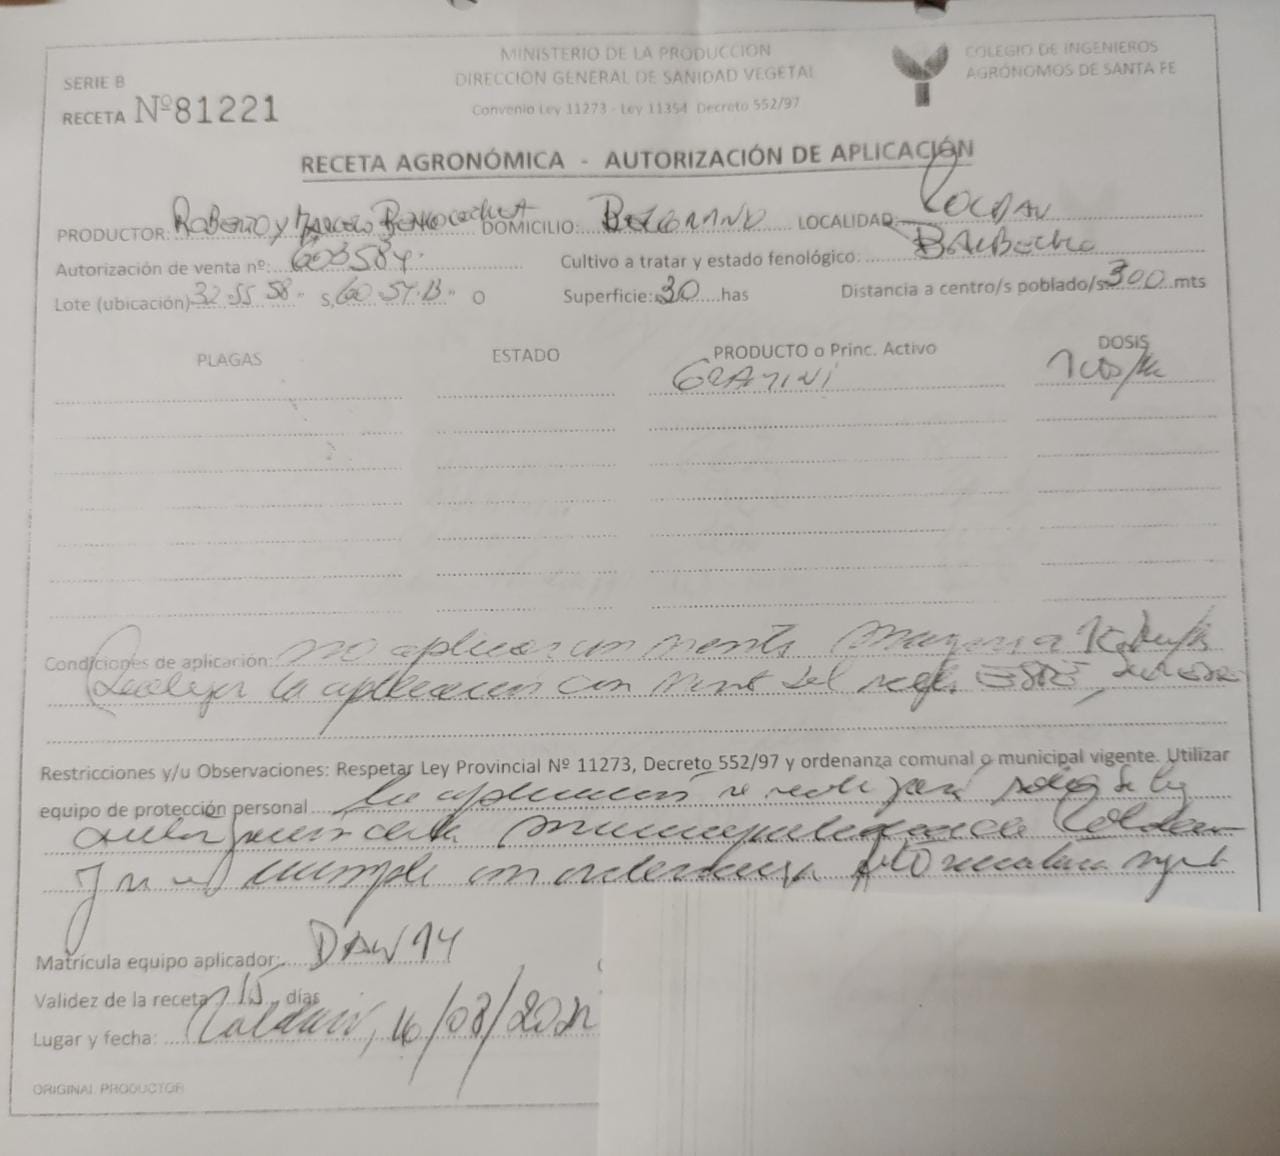 MINISTERIO DE LA PRODUCCION
DIRECCION GENERAL DE SANIDAD VEGETAL
Convenio Ley 11273 - Ley 11354 Decreto 552/97
COLEGIO DE INGENIEROS
AGRÓNOMOS DE SANTA FE
SERIE B
RECETA Nº 81221
RECETA AGRONÓMICA - AUTORIZACIÓN DE APLICACIÓN
PRODUCTOR: Roberto y Marcelo DOMICILIO: BELGRANO LOCALIDAD: ROLDAN
Autorización de venta nº: 603584. Cultivo a tratar y estado fenológico: BARBECHO
Lote (ubicación) 32 55 58" S, 60 54 13" O Superficie: 30 has Distancia a centro/s poblado/s 300 mts
PLAGAS ESTADO PRODUCTO o Princ. Activo DOSIS
Condiciones de aplicación: no aplicar con viento mayor a
Realizar la aplicacion con viento del
Restricciones y/u Observaciones: Respetar Ley Provincial Nº 11273, Decreto 552/97 y ordenanza comunal o municipal vigente. Utilizar
equipo de protección personal La aplicacion se realizara solo si
la municipalidad de Roldan
y se cumple con ordenanza
Matrícula equipo aplicador: DAW 14
Validez de la receta días
Lugar y fecha: Roldan, 16/08/2021
ORIGINAL PRODUCTOR